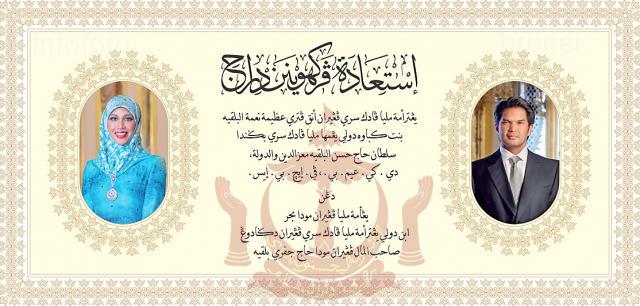 إستعادة ڤركهوينن دراج
يڠترأمة مليا ڤادك سري ڤڠيران أنق ڤتري عظيمة نعمة البلقيه
بنت كباوه دولي يڠمها مليا ڤادك سري بڬندا
سلطان حاج حسن البلقيه معزالدين والدولة،
دي . كي . عيم . بي .، ڤي . إيچ . بي . إيس .
دڠن
يڠأمة مليا ڤڠيران مودا بحر
ابن دولي يڠترأمة مليا ڤادك سري ڤڠيران دڬادوڠ
صاحب المال ڤڠيران مودا حاج جفري بلقيه